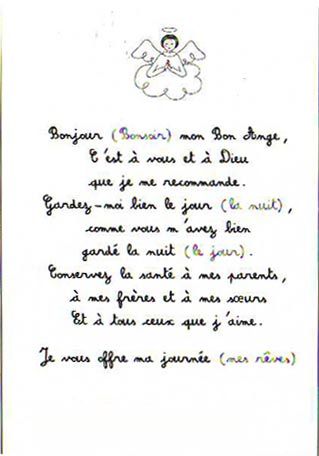 Bonjour (Bonsoir) mon Bon Ange,
C'est à vous et à Dieu
que je me recommande.
Gardez-moi bien le jour (la nuit),
comme vous m'avez bien
gardé la nuit (le jour).
Conservez la santé à mes parents,
à mes frères et à mes sœurs
Et à tous ceux que j'aime.
Je vous offre ma journée (mes rêves)